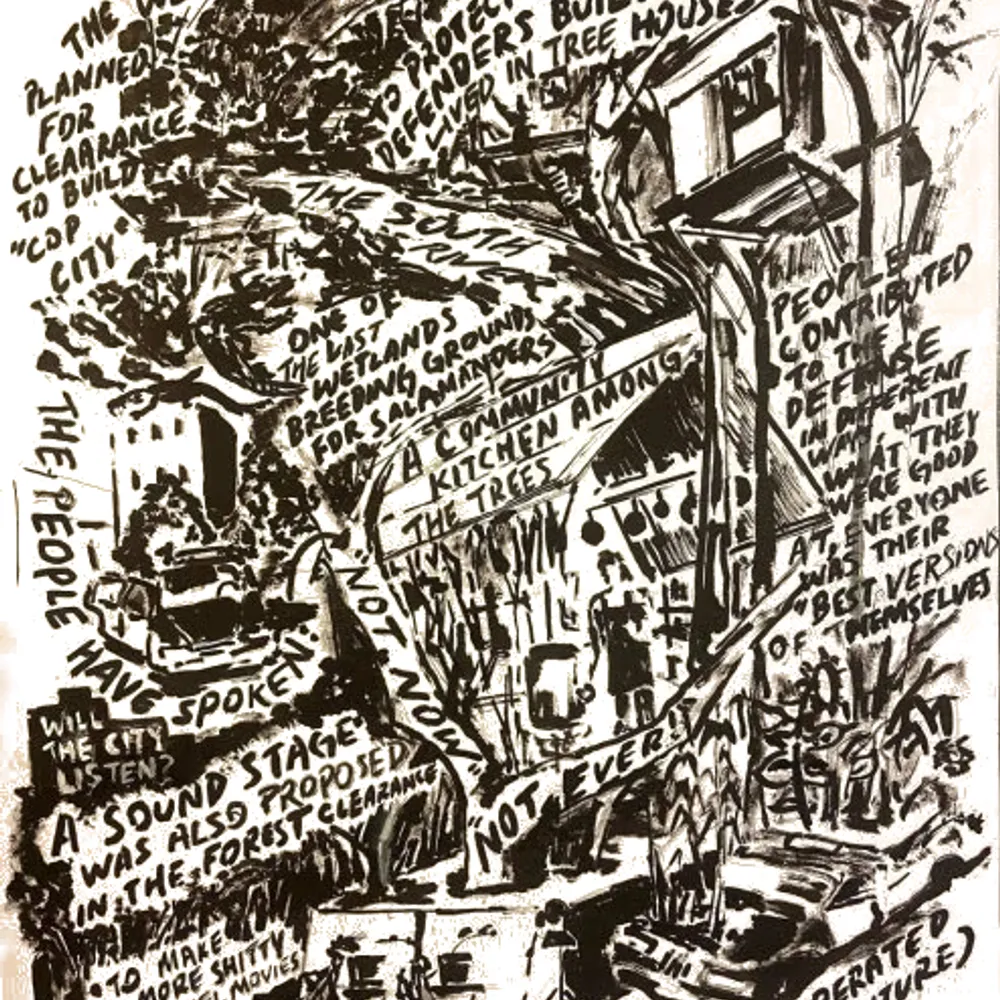 THE WE
PLANNED
FOR
CLEARANCE
TO BUILD
"COP
CITY"
PROTECT
DEFENDERS BUIL
TO
LIVED IN TREE HOUSES
THE SOUTH
RIVER
ONE OF
THE LAST
WETLANDS
BREEDING GROUNDS
FOR SALAMANDERS
A COMMUNITY
KITCHEN AMONG
THE TREES
PEOPLE
CONTRIBUTED
TO THE
DEFENSE
IN DIFFERENT
WAYS, WITH
WHAT THEY
WERE GOOD
AT, EVERYONE
WAS THEIR
"BEST VERSIONS
OF THEMSELVES
THE PEOPLE
HAVE SPOKEN
WILL
THE CITY
LISTEN?
"NOT NOW"
"NOT EVER!"
A SOUND STAGE
WAS ALSO PROPOSED
IN THE FOREST CLEARANCE
TO MAKE
MORE SHITTY
MOVIES
ERATED
TURE)